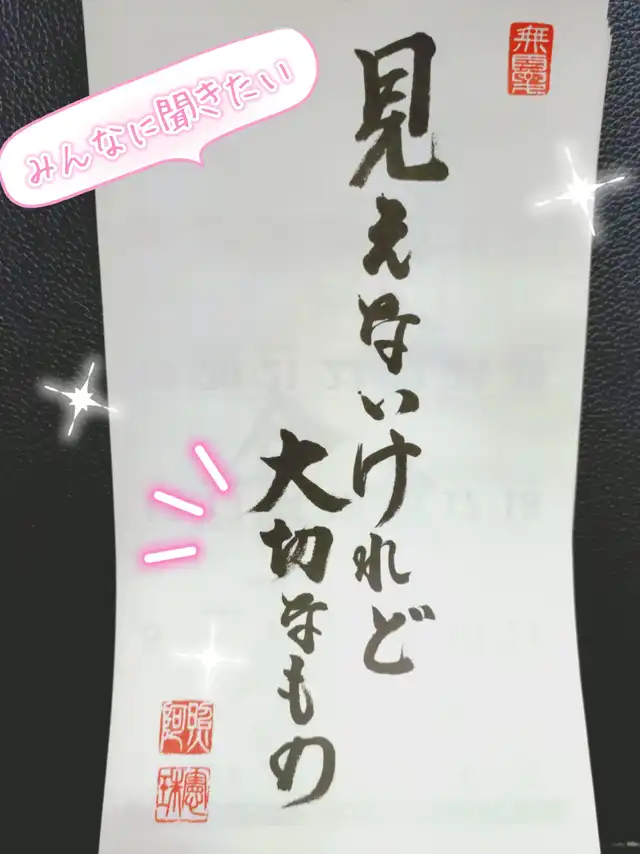 みんなに聞きたい
見えないけれど
大切なもの